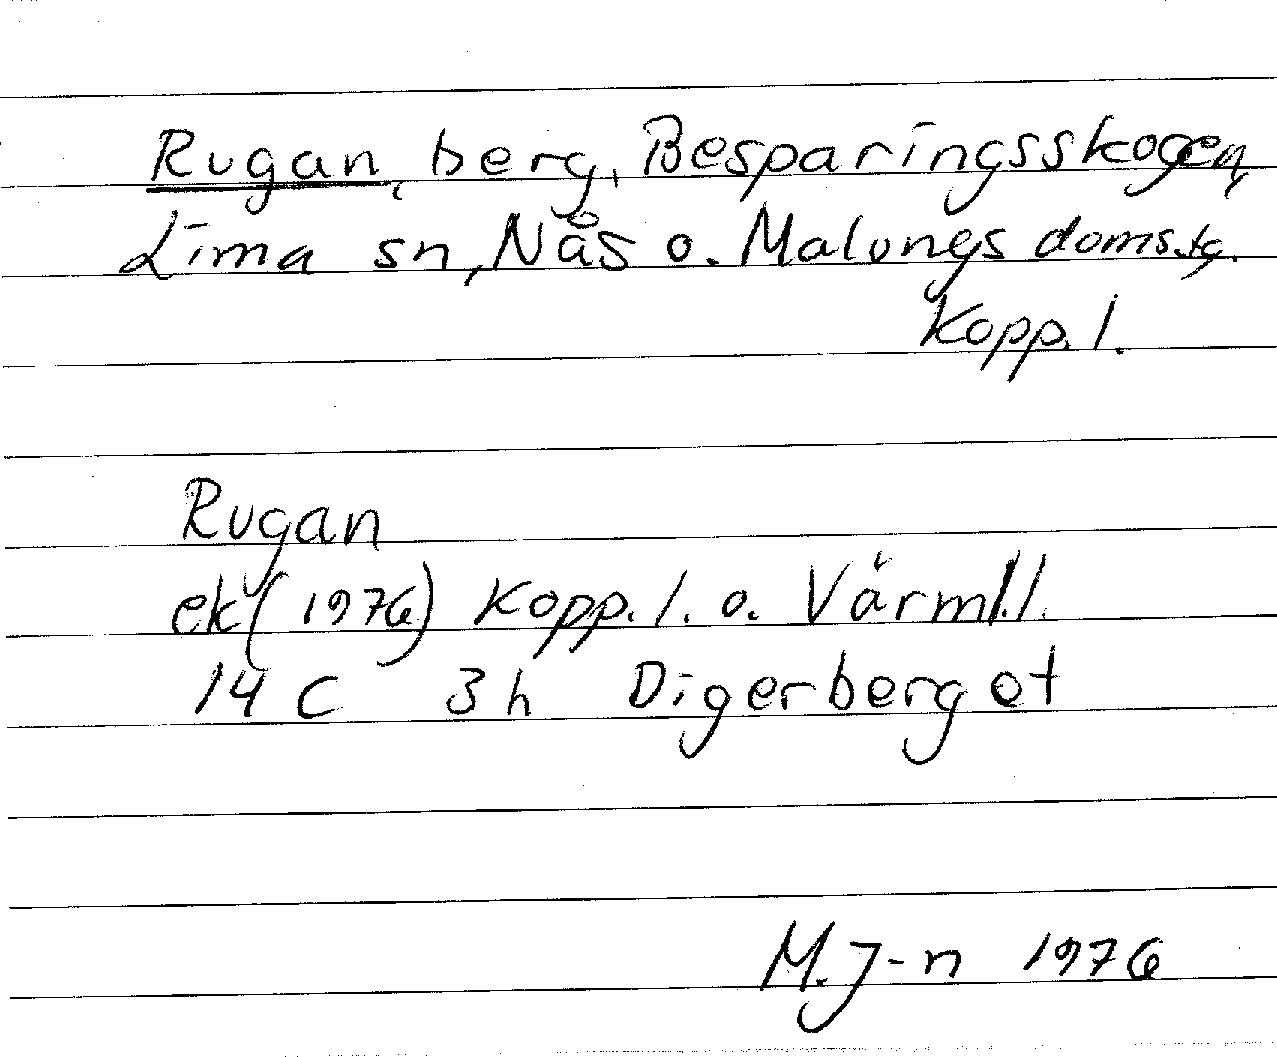 Rugan, berg, Besparingsskogen,
Lima sn, Nås o. Malungs doms.tg.
Kopp. l.
Rugan
ek (1976) Kopp. l. o. Värml. l.
14 C 3 h Digerberget
M. J-n 1976